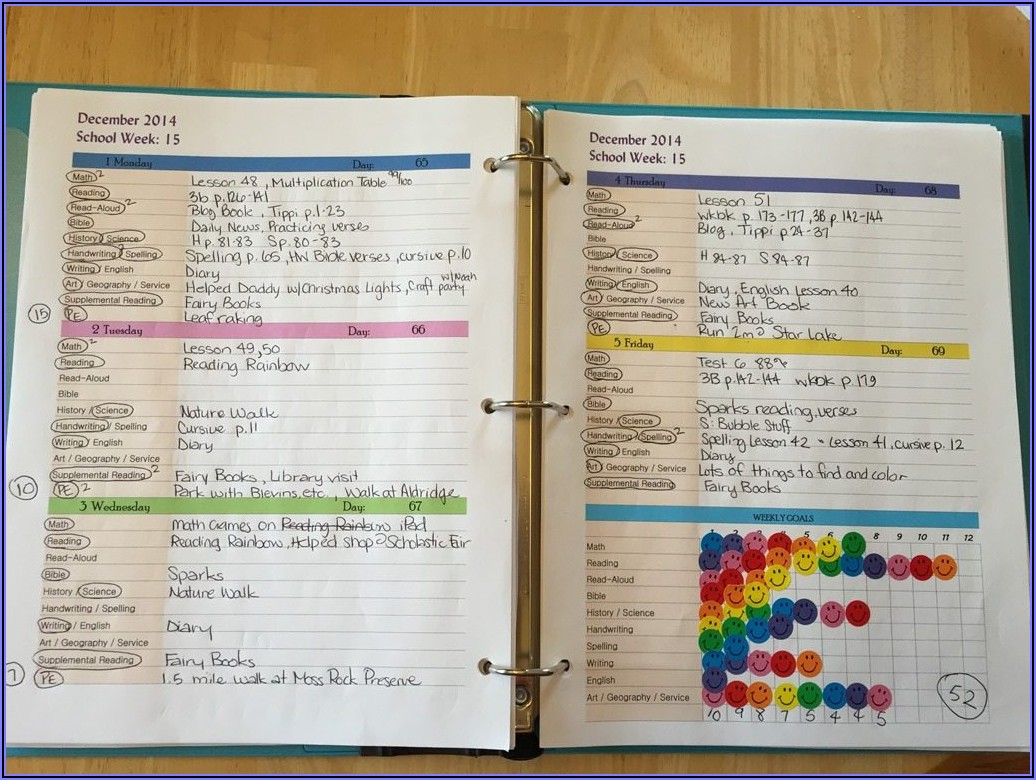 December 2014
School Week: 15
1 Monday Day: 65
Math 2 Lesson 48, Multiplication Table 99/100
Reading 3b p.126-141
Read-Aloud 2 Blog Book, Tippi p.1-23
Bible Daily News, Practicing verses
History / Science H p.81-83 S p.80-83
Handwriting / Spelling Spelling p.65, HW Bible verses, cursive p.10
Writing / English Diary
Art / Geography / Service Helped Daddy w/Christmas Lights, Craft party w/Noah
Supplemental Reading Fairy Books
15 PE Leaf raking
2 Tuesday Day: 66
Math 2 Lesson 49,50
Reading Reading Rainbow
Read-Aloud
Bible
History / Science Nature Walk
Handwriting / Spelling Cursive p.11
Writing / English Diary
Art / Geography / Service
Supplemental Reading 2 Fairy Books, Library visit
10 PE 2 Park with Blevins, etc., Walk at Aldridge
3 Wednesday Day: 67
Math math games on Reading Rainbow iPad
Reading Reading Rainbow, Helped shop @ Scholastic Fair
Read-Aloud
Bible Sparks
History / Science Nature Walk
Handwriting / Spelling
Writing / English Diary
Art / Geography / Service
Supplemental Reading Fairy Books
7 PE 1.5 mile walk at Moss Rock Preserve
December 2014
School Week: 15
4 Thursday Day: 68
Math Lesson 51
Reading wkbk p. 173-177, 3B p. 142-144
Read-Aloud 2 Blog, Tippi p 24-37
Bible
History / Science H 84-87 S 84-87
Handwriting / Spelling
Writing / English Diary, English Lesson 40
Art / Geography / Service New Art Book
Supplemental Reading Fairy Books
PE Run 2m @ Star Lake
5 Friday Day: 69
Math Test 6 88%
Reading 3B p.142-144 wkbk p.179
Read-Aloud
Bible Sparks reading, verses
History / Science S: Bubble Stuff
Handwriting / Spelling 2 Spelling Lesson 42 + Lesson 41, cursive p. 12
Writing / English Diary
Art / Geography / Service Lots of things to find and color
Supplemental Reading Fairy Books
WEEKLY GOALS
1 2 3 4 5 6 7 8 9 10 11 12
Math
Reading
Read-Aloud
Bible
History / Science
Handwriting
Spelling
Writing
English
Art / Geography / Service
10 9 8 7 5 4 4 5
52